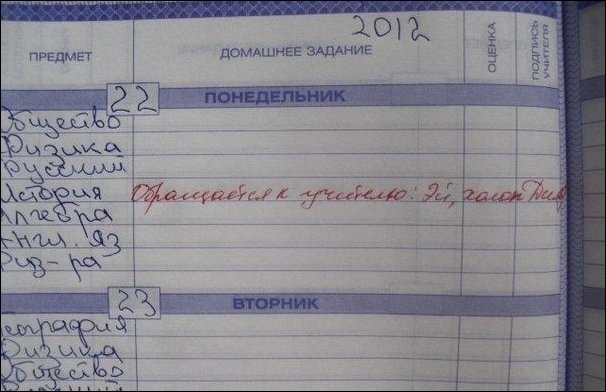 2012
ПРЕДМЕТ ДОМАШНЕЕ ЗАДАНИЕ ОЦЕНКА ПОДПИСЬ УЧИТЕЛЯ
22 ПОНЕДЕЛЬНИК
Общество
Физика
Русский
История Обращается к учителю: Эй, холоп
Алгебра
Англ. яз
Физ-ра
23 ВТОРНИК
География
Физика
Общество
Русский